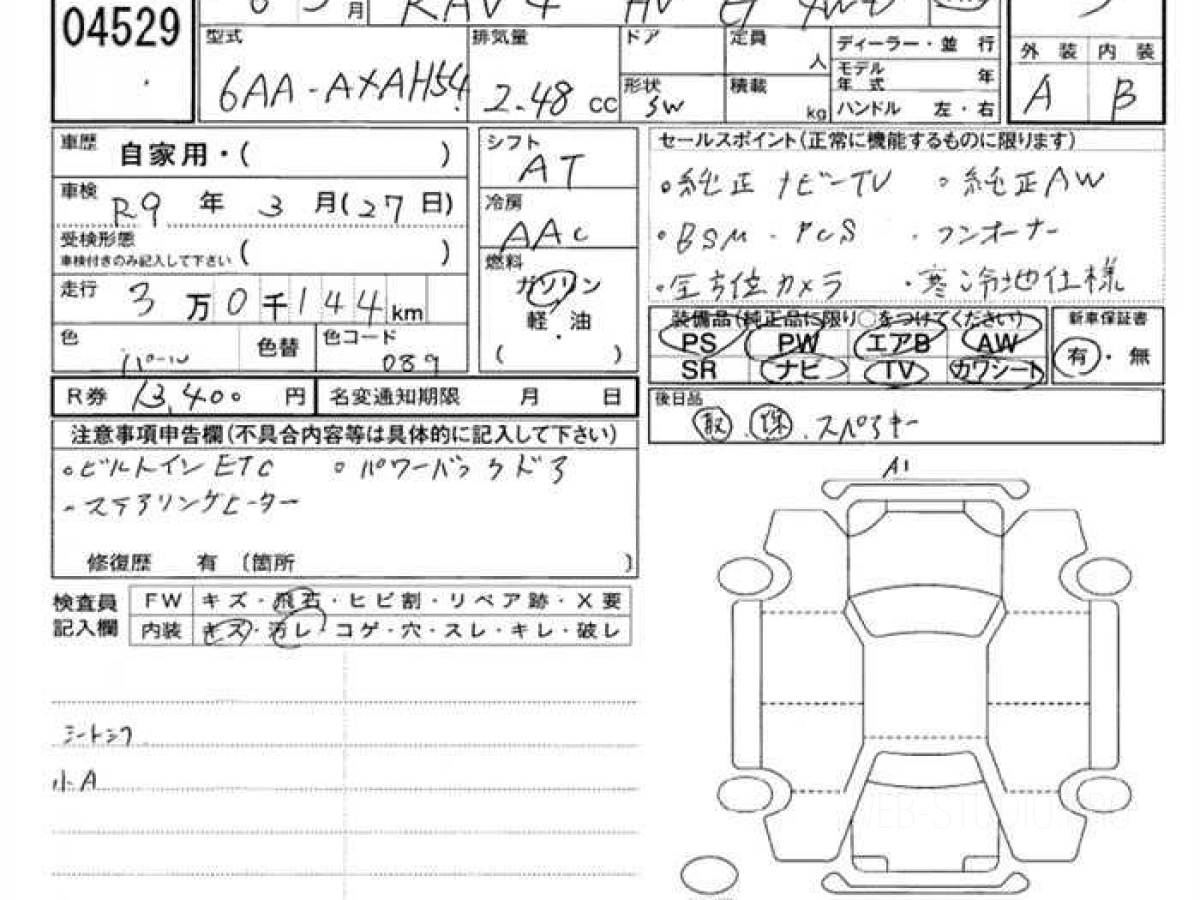 04529
月 RAV4 HV G 4WD
型式 6AA-AXAH54
排気量 2.48 cc
ドア
定員 人
形状 SW
積載 kg
ディーラー・並 行
モデル年式 年
ハンドル 左・右
外 装 内 装
A B
車歴 自家用・( )
車検 R9 年 3 月(27日)
受検形態
車検付きのみ記入して下さい ( )
走行 3万0千144km
色 パール 色替 色コード 089
シフト AT
冷房 AAC
燃料 ガソリン
軽・油
( )
セールスポイント(正常に機能するものに限ります)
・純正ナビーTV ・純正AW
・BSM・PCS ・ワンオーナー
・全方位カメラ ・寒冷地仕様
装備品(純正品に限り○をつけてください)
PS PW エアB AW
SR ナビ TV カワシート
新車保証書
有・無
R券 13,400 円 名変通知期限 月 日
後日品
取・保・スペアキー
注意事項申告欄(不具合内容等は具体的に記入して下さい)
・ビルトインETC ・パワーバックドア
・ステアリングヒーター
修復歴 有 〔箇所 〕
検査員記入欄
FW キズ・飛石・ヒビ割・リペア跡・X要
内装 キズ・汚レ・コゲ・穴・スレ・キレ・破レ
シートシワ
小A
A1
WEB-STUDIO.PRO